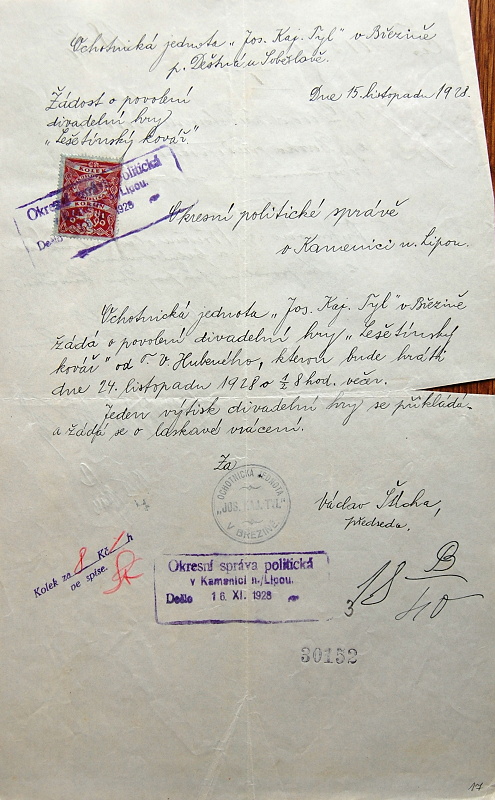 Ochotnická jednota „Jos. Kaj. Tyl" v Březině
p. Deštná u Soběslavě.
Dne 15. listopadu 1928.
Žádost o povolení
divadelní hry
„Lešetínský kovář."
KOLEK
Okresní politická
Lipou.
Došlo 1928
Okresní politické správě
v Kamenici n. Lipou.
Ochotnická jednota „Jos. Kaj. Tyl" v Březině
žádá o povolení divadelní hry „Lešetínský
kovář" od F. V. Hubeného, kterou bude hráti
dne 24. listopadu 1928 o ½ 8 hod. večer.
Jeden výtisk divadelní hry se přikládá
a žádá se o laskavé vrácení.
Za
OCHOTNICKÁ JEDNOTA
„JOS. KAJ. TYL"
V BŘEZINĚ
Václav
předseda.
Kolek za 8 Kč h
na spise.
Okresní správa politická
v Kamenici n./Lipou.
Došlo 16. XI. 1928
30152
17